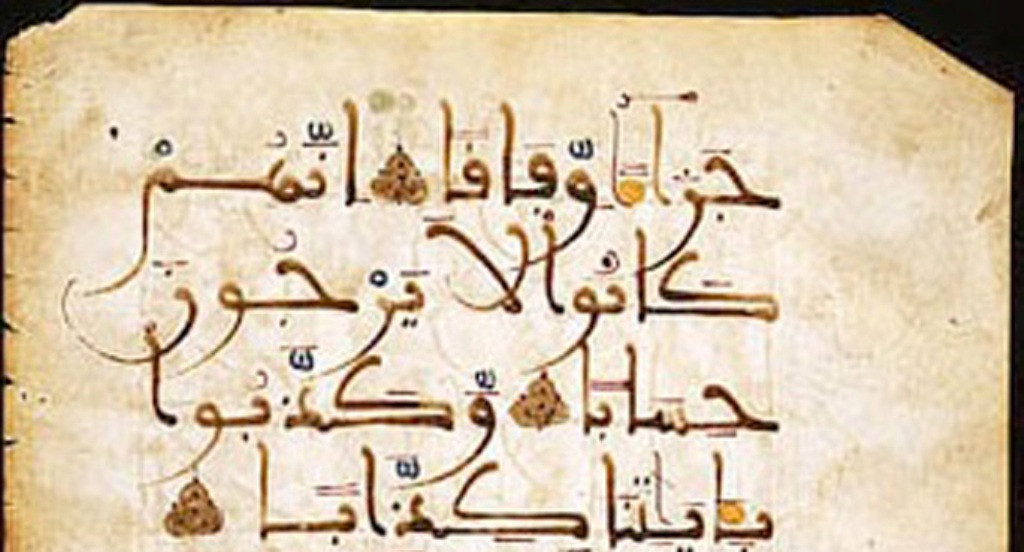 جَزَآءً وِّفَاقًا إِنَّهُمْ
كَانُوا لَا يَرْجُونَ
حِسَابًا وَّكَذَّبُوا
بِـَٔايَٰتِنَا كِذَّابًا